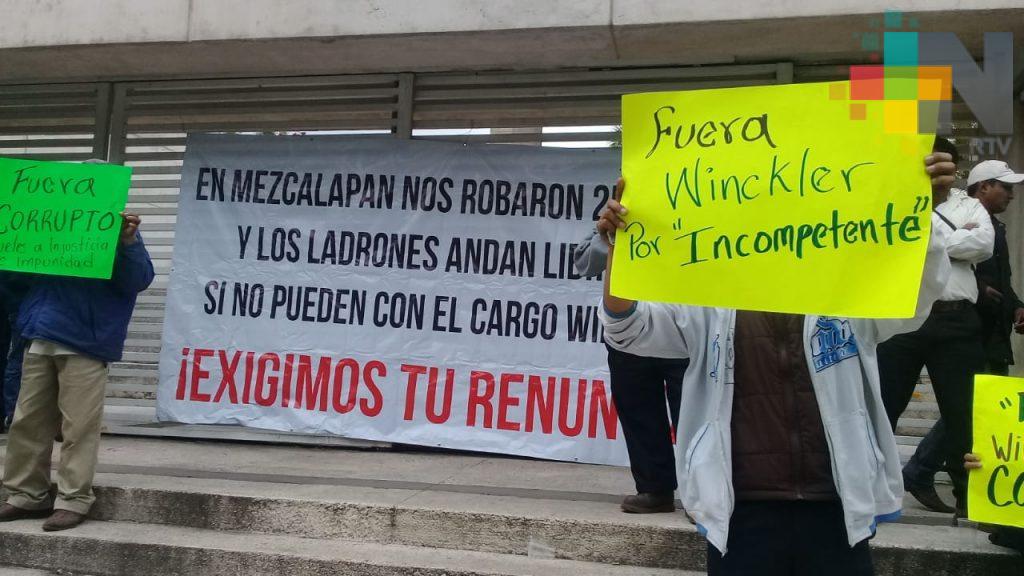 Fuera
CORRUPTO
a Injusticia
Impunidad
EN MEZCALAPAN NOS ROBARON
Y LOS LADRONES ANDAN
SI NO PUEDEN CON EL CARGO
¡EXIGIMOS TU
Fuera
Winckler
Por "Incompetente"
N
RTV